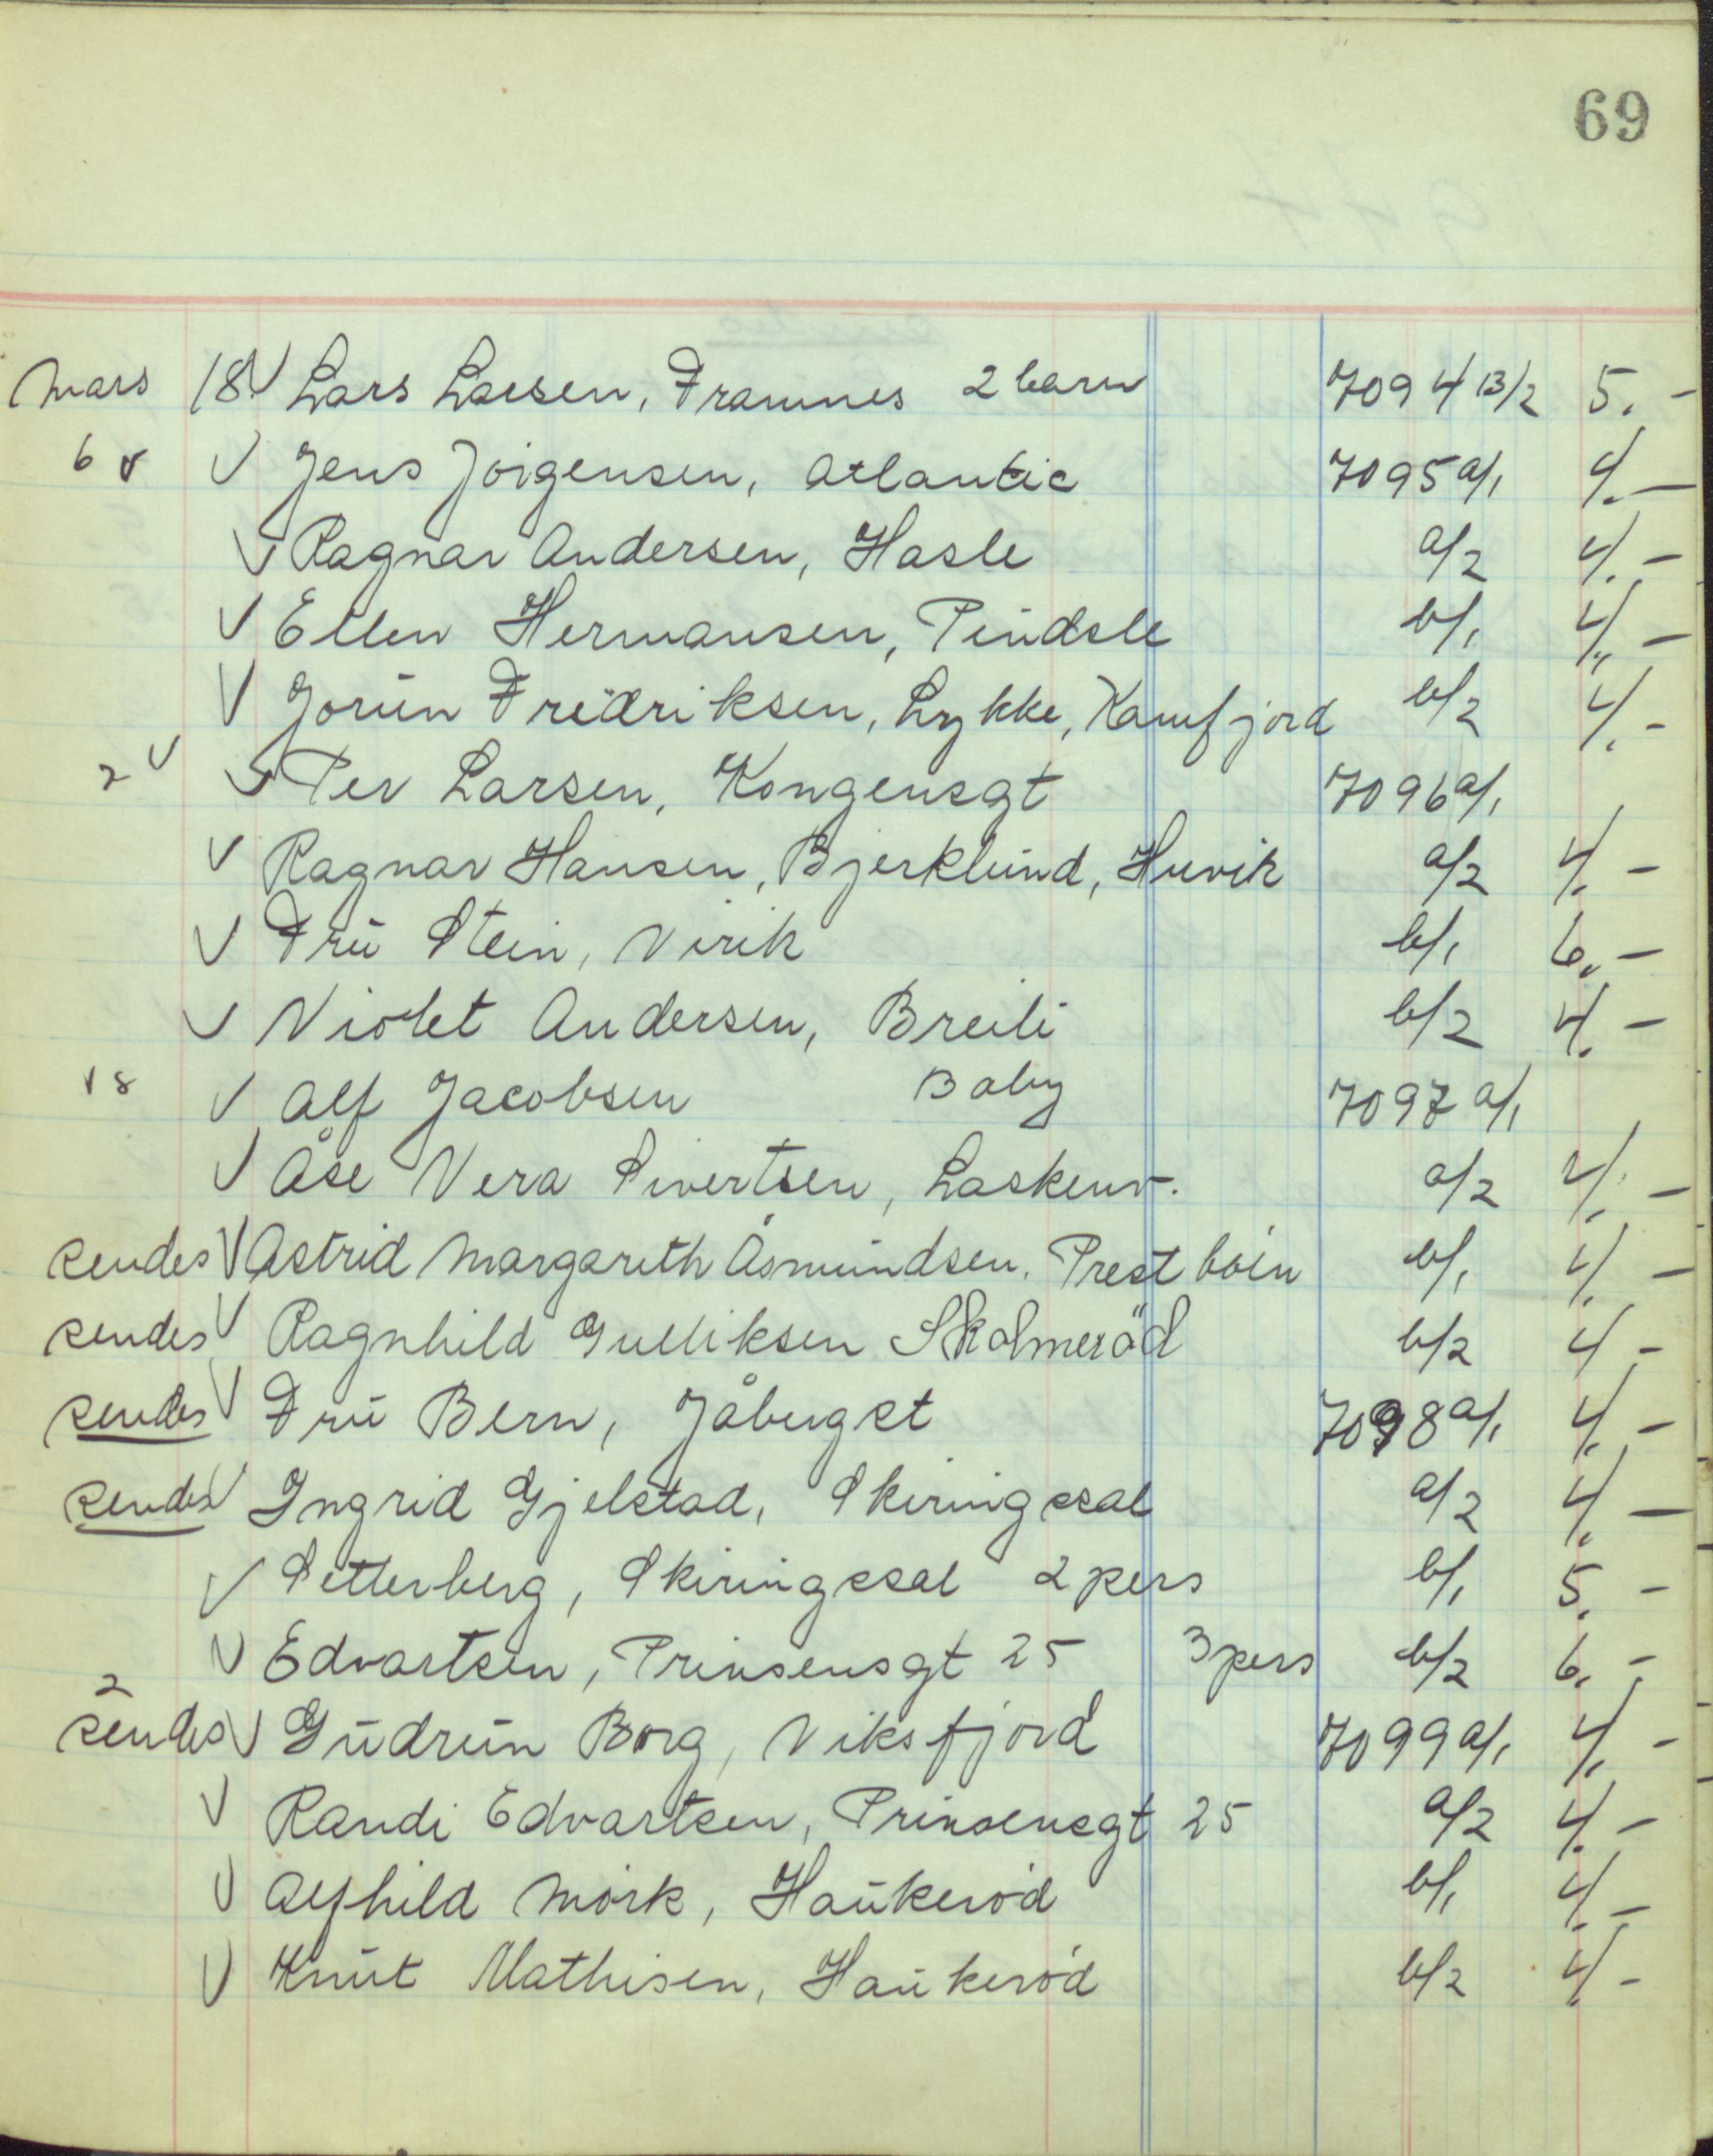 69
Mars 18 √ Lars Larsen, Framnes 2 barn 7094 B/2 5.-
6 √ √ Jens Jörgensen, Atlantic 7095 a/1 4.-
√ Ragnar Andersen, Hasle a/2 4.-
√ Ellen Hermansen, Pindsle b/1 4.-
√ Jorun Fredriksen, Lykke, Kamfjord b/2 4.-
2 √ √ Per Larsen, Kongensgt 7096 a/1
√ Ragnar Hansen, Bjerklund, Huvik a/2 4.-
√ Fru Stein, Virik b/1 6.-
√ Violet Andersen, Breili b/2 4.-
√ 8 √ Alf Jacobsen Baby 7097 a/1
√ Åse Vera Sivertsen, Laskenv. a/2 4.-
sendes √ Astrid Margareth Åsmundsen. Prestböen b/1 4.-
sendes √ Ragnhild Gulliksen Skolmeröd b/2 4-
sendes √ Fru Bern, Jåberget 7098 a/1 4.-
sendes √ Ingrid Gjelstad, Skiringssal a/2 4.-
√ Setterberg, Skiringssal 2 pers b/1 5.-
√ Edvartsen, Prinsensgt 25 3 pers b/2 6.-
2
sendes √ Gudrun Borg, Viksfjord 7099 a/1 4.-
√ Randi Edvartsen, Prinsensgt 25 a/2 4.-
√ Alfhild Mörk, Haukeröd b/1 4.-
√ Knut Mathisen, Haukeröd b/2 4-